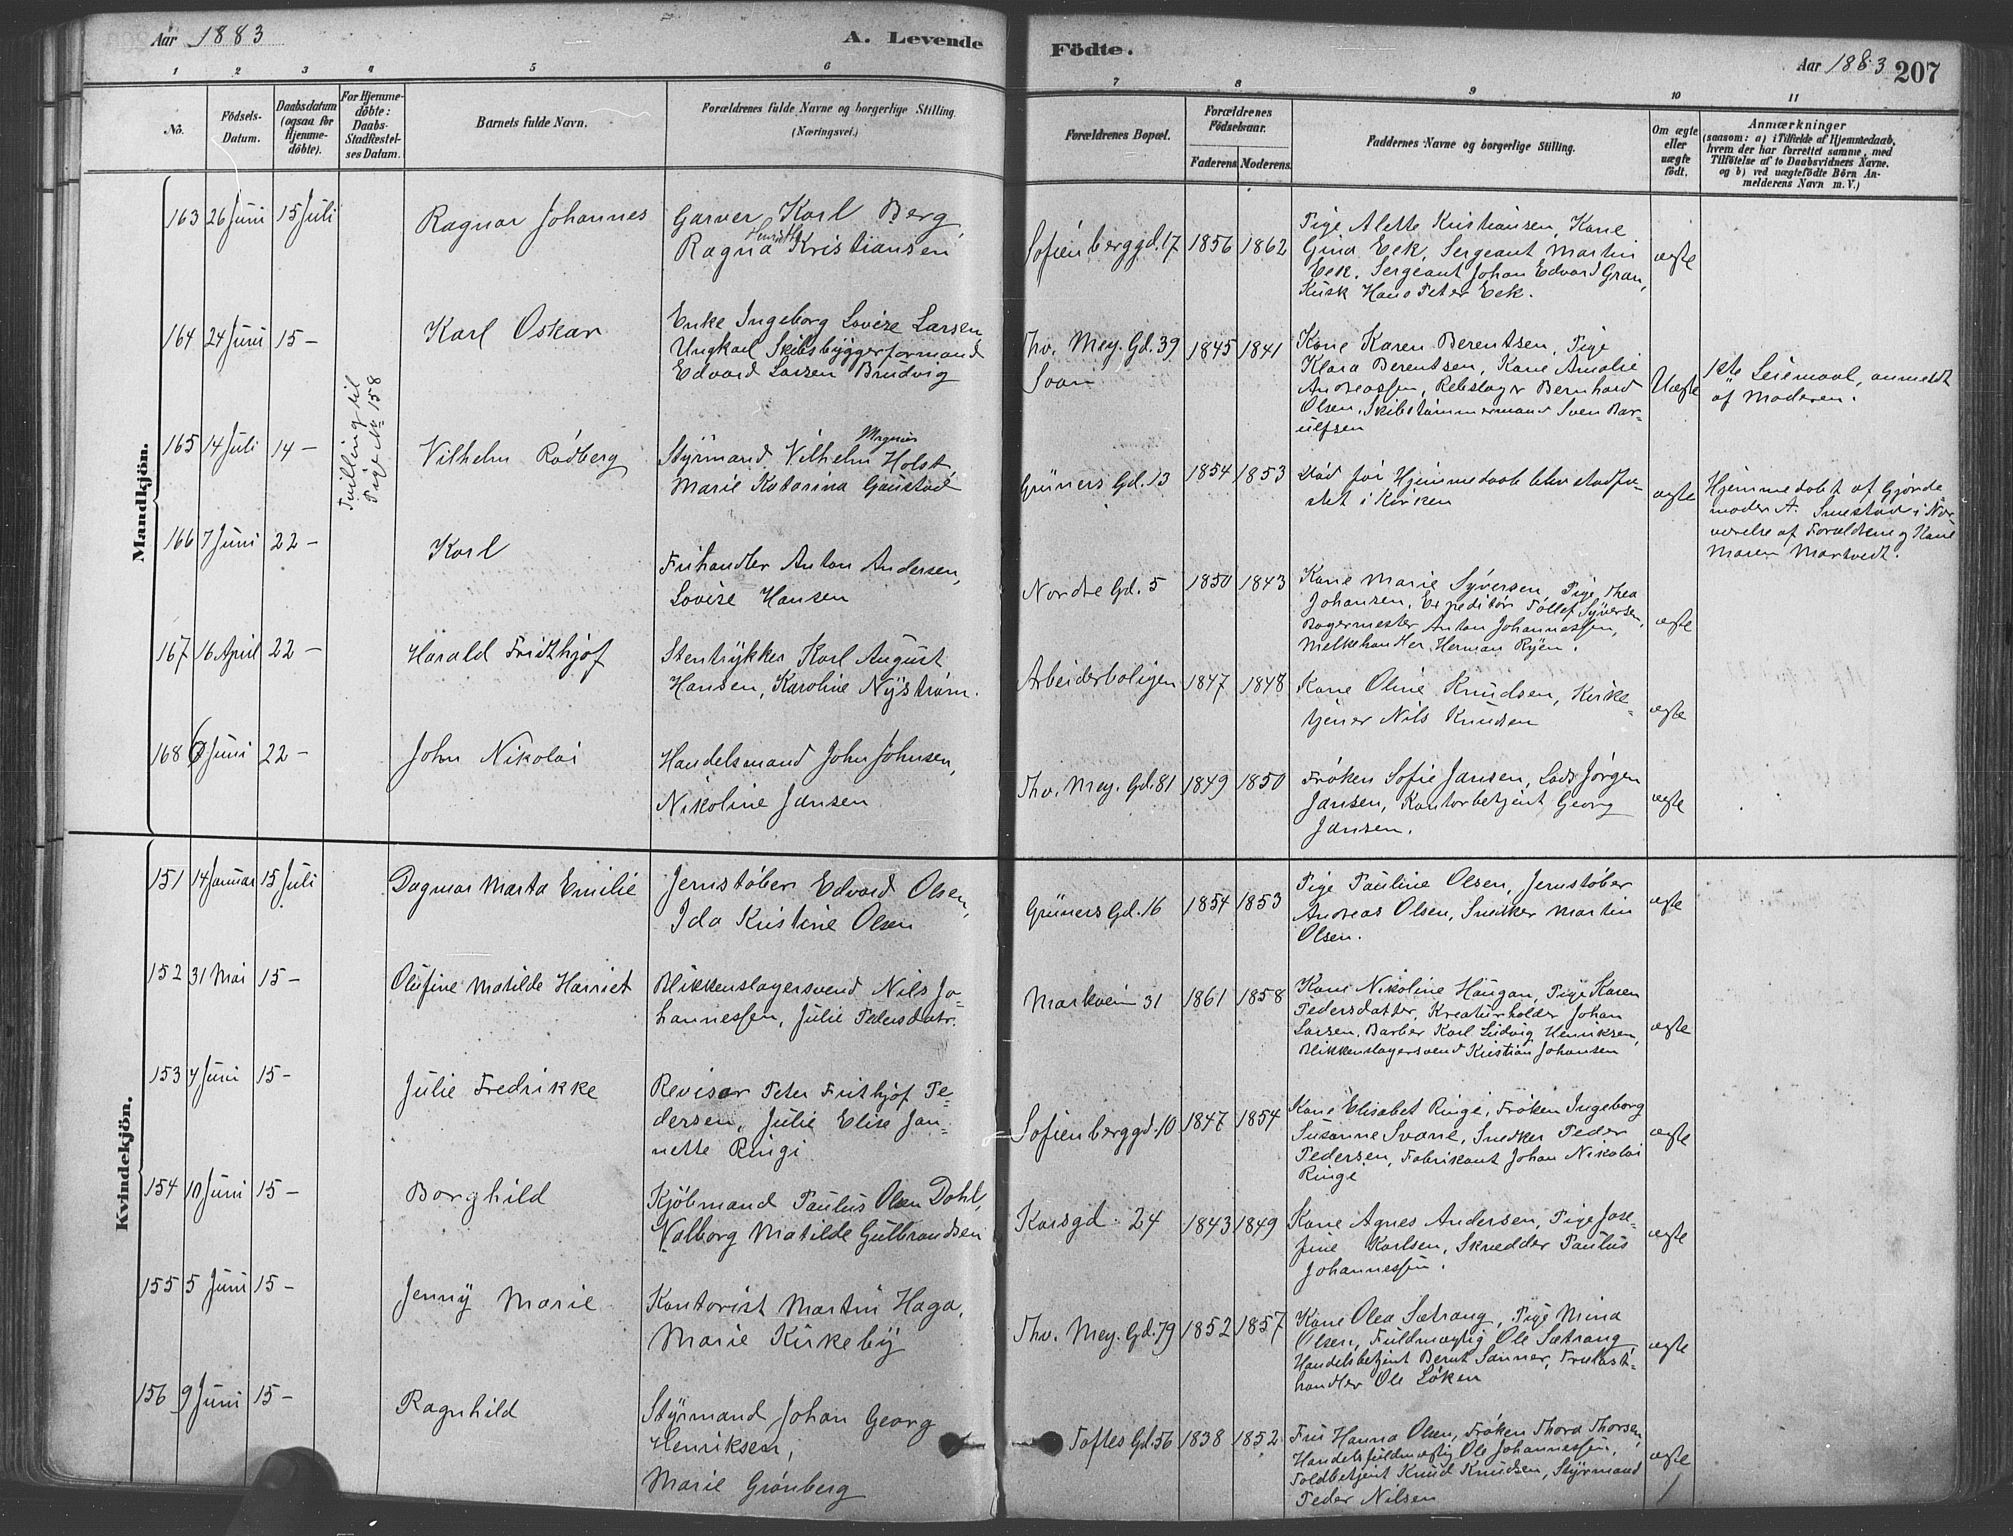 Aar 1883
A. Levende
Födte.
Aar 1883
207
1 2 3 4 5 6 7 8 9 10 11
No.
Födsels-
Datum.
Daabsdatum
(ogsaa for
Hjemme-
döbte).
For Hjemme-
döbte:
Daabs-
Stadfæstel-
ses Datum.
Barnets fulde Navn.
Forældrenes fulde Navne og borgerlige Stilling.
(Næringsvei.)
Forældrenes Bopæl.
Forældrenes
Födselsaar.
Faderens. Moderens.
Faddernes Navne og borgerlige Stilling.
Om ægte
eller
uægte
födt.
Anmærkninger
(saasom: a) i Tilfælde af Hjemmedaab,
hvem der har forrettet samme, med
Tilföielse af to Daabsvidners Navne.
og b) ved uægtefödte Börn An-
melderens Navn m. V.)
Mandkjön.
163 26 Juni 15 Juli
Ragnar Johannes
Garver Karl Berg,
Henriette
Ragna Kristiansen
Sofienberggd. 17 1856 1862
Pige Alette Kristiansen, Kone
Gina Eek, Sergeant Martin
Eek, Sergeant Johan Edvard Gran,
Kusk Hans Peter Eek.
ægte
164 24 Juni 15 –
Karl Oskar
Enke Ingeborg Lovise Larsen
Ungkarl Skibsbyggerformand
Edvard Larsen Brudvig
Thv. Mey. Gd. 39 1845 1841
Kone Karen Berentsen, Pige
Klara Berentsen, Kone Amalie
Andreassen, Rebslager Bernhard
Olsen, Skibstømmermand Sven Bar-
ulfsen
Uægte
1ste Leiemaal, anmeldt
af Moderen.
165 14 Juli 14 –
Tvilling til
Pige № 158
Vilhelm Rødberg
Magnus
Styrmand Vilhelm Holst,
Marie Katarina Gaustad
Grüners Gd. 13 1854 1853
Død før Hjemmedaab blev stadfæ-
stet i Kirken
ægte
Hjemmedøbt af Gjorde-
moder A. Smestad i Nær-
værelse af Forældrene og Kone
Maren Martvedt.
166 7 Juni 22 –
Karl
Frihandler Anton Andersen,
Lovise Hansen
Nordre Gd. 5 1850 1843
Kone Marie Syversen, Pige Thea
Johansen, Expeditør Tollef Syversen,
Bagermester Anton Johannessen,
Melkehandler Herman Ryen.
ægte
167 16 April 22 –
Harald Fridthjof
Stentrykker Karl August
Hansen, Karoline Nystrøm.
Arbeiderboligen 1847 1848
Kone Oline Knudsen, Kirke-
tjener Nils Knudsen
ægte
168 6 Juni 22 –
John Nikolai
Handelsmand John Johnsen,
Nikoline Jansen
Thv. Mey. Gd. 81 1849 1850
Frøken Sofie Jansen, Lods Jørgen
Jansen, Kontorbetjent Georg
Jansen.
ægte
Kvindekjön.
151 14 Januar 15 Juli
Dagmar Marta Emilie
Jernstøber Edvard Olsen,
Ida Kristine Olsen
Grüners Gd. 16 1854 1853
Pige Pauline Olsen, Jernstøber
Andreas Olsen, Snedker Martin
Olsen.
ægte
152 31 Mai 15 –
Olufine Matilde Harriet
Blikkenslagersvend Nils Jo-
hannessen, Julie Pedersdatr.
Markveien 31 1861 1858
Kone Nikoline Haugan, Pige Karen
Pedersdatter, Kreaturholder Johan
Larsen, Barber Karl Ludvig Henriksen,
Blikkenslagersvend Kristian Johansen
ægte
153 4 Juni 15 –
Julie Fredrikke
Revisor Peter Frithjof Pe-
dersen, Julie Elise Jan-
nette Ringi
Sofienberggd. 10 1847 1854
Kone Elisabet Ringi, Frøken Ingeborg
Susanne Svane, Snedker Peder
Pedersen, Fabrikant Johan Nikolai
Ringi
ægte
154 10 Juni 15 –
Borghild
Kjøbmand Paulus Olsen Dahl,
Valborg Matilde Gulbrandsen
Korsgd. 24 1843 1849
Kone Agnes Andersen, Pige Jose-
fine Karlsen, Skrædder Paulus
Johannessen.
ægte
155 5 Juni 15 –
Jenny Marie
Kontorist Martin Haga,
Marie Kirkeby
Thv. Mey. Gd. 79 1852 1857
Kone Olea Sætrang, Pige Mina
Olsen, Fuldmægtig Ole Sætrang
Handelsbetjent Bernt Sanner, Trælast-
handler Ole Løken
ægte
156 9 Juni 15 –
Ragnhild
Styrmand Johan Georg
Henriksen,
Marie Grønberg
Toftes Gd. 56 1838 1852
Fru Hanna Olsen, Frøken Thora Thorsen,
Handelsfuldmægtig Ole Johannessen,
Toldbetjent Knud Knudsen, Styrmand
Peder Nilsen
ægte